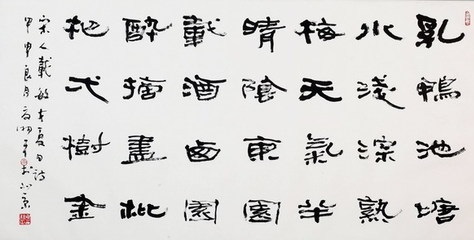 乳鴨池塘
水淺深熟
梅天氣半
晴陰東園
載酒西園
醉摘盡枇
杷弌樹金
宋人戴敏才夏日詩
甲申良月於北京